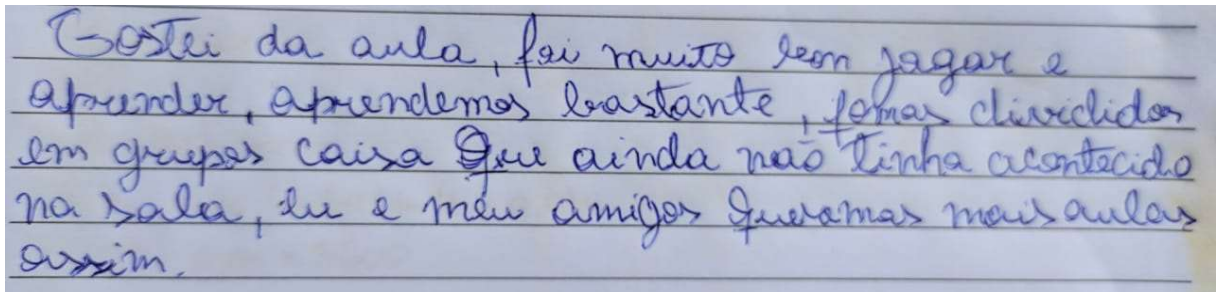 Gostei da aula, foi muito bom jogar e
aprender, aprendemos bastante, fomos divididos
em grupos coisa que ainda não tinha acontecido
na sala, eu e meu amigos queremos mais aulas
assim.